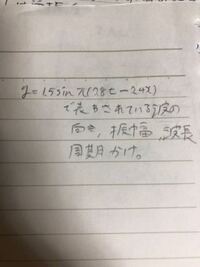 y=1.5sinπ(28t-24x)
で表わされている波の
向き,振幅,波長
周期かけ。